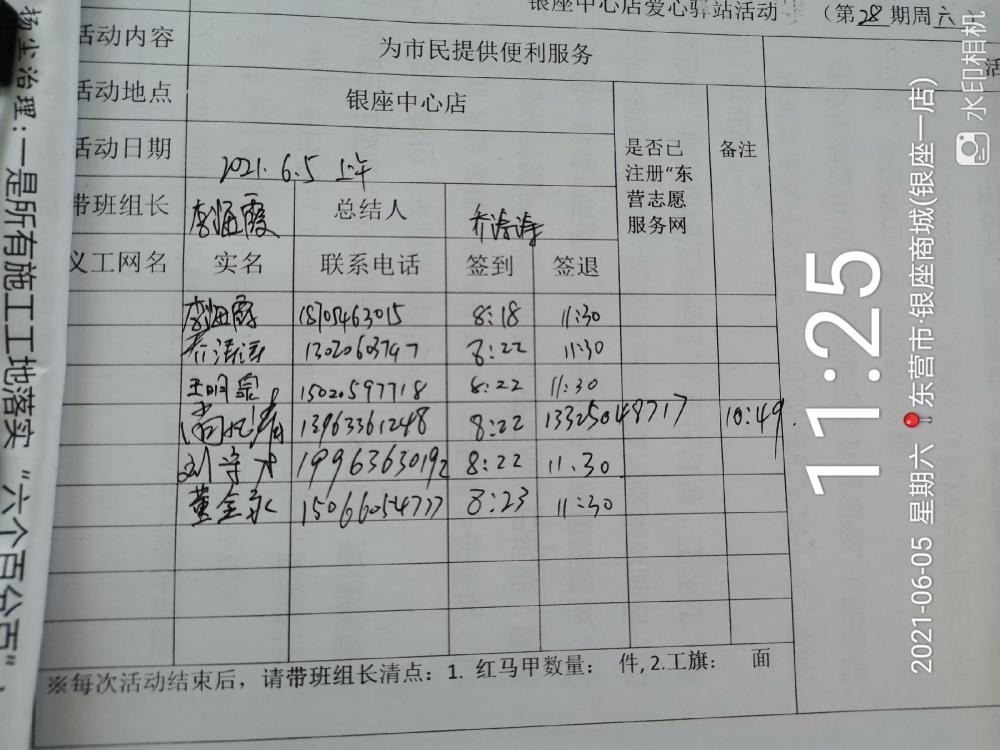 银座中心店爱心驿站活动 (第28期周六
活动内容 为市民提供便利服务
活动地点 银座中心店
活动日期 2021.6.5 上午
是否已注册“东营志愿服务网 备注
带班组长 李海霞 总结人 乔涛涛
义工网名 实名 联系电话 签到 签退
李海霞 18705463015 8:18 11:30
乔涛涛 13020603747 8:22 11:30
王明宗 15020597718 8:22 11:30
13963361248 8:22 13325048717 10:49.
刘守才 19963630192 8:22 11.30
董金永 15066054777 8:23 11:30
※每次活动结束后，请带班组长清点：1. 红马甲数量： 件,2.工旗： 面
扬尘治理：一是所有施工工地落实“六个百分百”，
11:25
2021-06-05 星期六 东营市·银座商城(银座一店)
水印相机